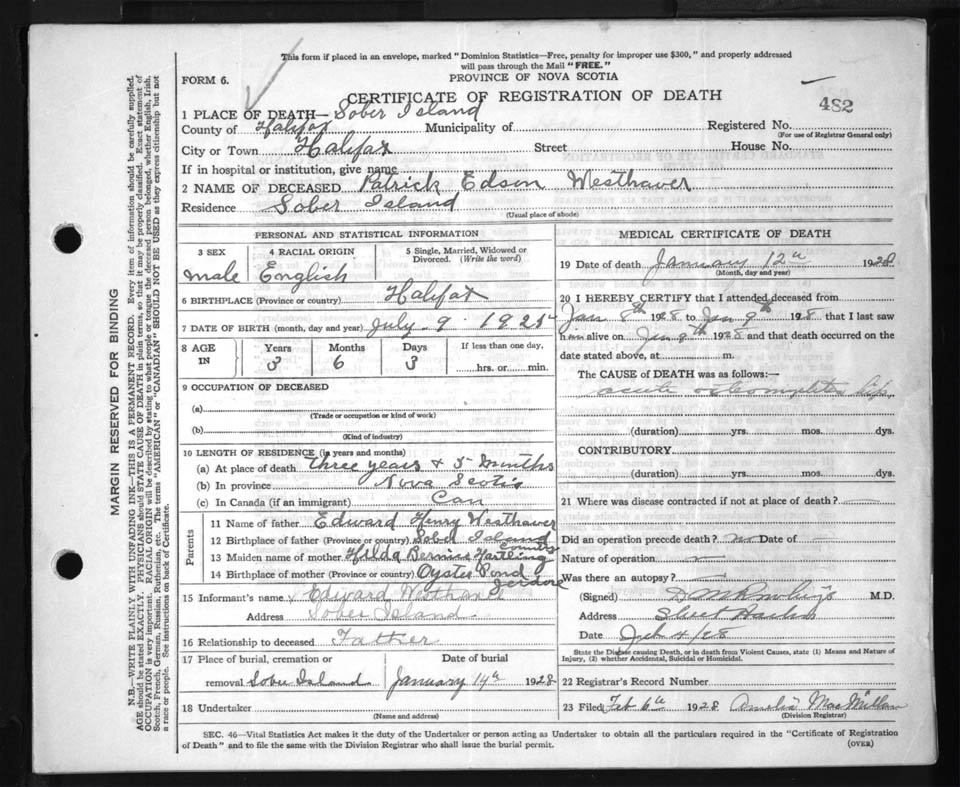 This form if placed in an envelope, marked "Dominion Statistics—Free, penalty for improper use $300," and properly addressed
will pass through the Mail "FREE."
FORM 6.
PROVINCE OF NOVA SCOTIA
CERTIFICATE OF REGISTRATION OF DEATH
482
1 PLACE OF DEATH— Sober Island
County of Halifax Municipality of Registered No.
(For use of Registrar General only)
City or Town Halifax Street House No.
If in hospital or institution, give name
2 NAME OF DECEASED Patrick Edson Westhaver
Residence Sober Island
(Usual place of abode)
PERSONAL AND STATISTICAL INFORMATION
3 SEX 4 RACIAL ORIGIN 5 Single, Married, Widowed or Divorced. (Write the word)
male English
6 BIRTHPLACE (Province or country) Halifax
7 DATE OF BIRTH (month, day and year) July 9
8 AGE IN Years Months Days If less than one day,
3 6 3 hrs. or min.
9 OCCUPATION OF DECEASED
(a)
(Trade or occupation or kind of work)
(b)
(Kind of industry)
10 LENGTH OF RESIDENCE (in years and months)
(a) At place of death three years & 5 months
(b) In province Nova Scotia
(c) In Canada (if an immigrant) Can
Parents
11 Name of father Edward Henry Westhaver
12 Birthplace of father (Province or country) Sober Island
13 Maiden name of mother Hilda Bernice Hartling
14 Birthplace of mother (Province or country) Oyster Pond
15 Informant's name Edward
Address Sober Island
16 Relationship to deceased Father
17 Place of burial, cremation or removal Sober Island
Date of burial January 14th 1928
18 Undertaker
(Name and address)
MEDICAL CERTIFICATE OF DEATH
19 Date of death January 12th 1928
(Month, day and year)
20 I HEREBY CERTIFY that I attended deceased from
Jan 8th 1928 to Jan 9th 1928 that I last saw
him alive on Jan 1928 and that death occurred on the
date stated above, at m.
The CAUSE of DEATH was as follows:—
acute
(duration) yrs. mos. dys.
CONTRIBUTORY
(duration) yrs. mos. dys.
21 Where was disease contracted if not at place of death?
Did an operation precede death? no Date of
Nature of operation
Was there an autopsy?
(Signed) M.D.
Address Sheet Harbor
Date 4/28
State the Disease causing Death, or in death from Violent Causes, state (1) Means and Nature of
Injury, (2) whether Accidental, Suicidal or Homicidal.
22 Registrar's Record Number
23 Filed Feb 6th 1928 Amelia MacMillan
(Division Registrar)
SEC. 46—Vital Statistics Act makes it the duty of the Undertaker or person acting as Undertaker to obtain all the particulars required in the "Certificate of Registration
of Death" and to file the same with the Division Registrar who shall issue the burial permit.
(OVER)
MARGIN RESERVED FOR BINDING
N.B.—WRITE PLAINLY WITH UNFADING INK—THIS IS A PERMANENT RECORD. Every item of information should be carefully supplied.
AGE should be stated EXACTLY. PHYSICIANS should STATE CAUSE OF DEATH in plain terms, so that it may be properly classified. Exact statement of
OCCUPATION is very important. RACIAL ORIGIN will be described by stating to what people or tongue the deceased person belonged, whether English, Irish,
Scotch, French, German, Russian, Ruthenian, etc. The terms "AMERICAN" or "CANADIAN" SHOULD NOT BE USED as they express citizenship but not
a race or people. See instructions on back of Certificate.